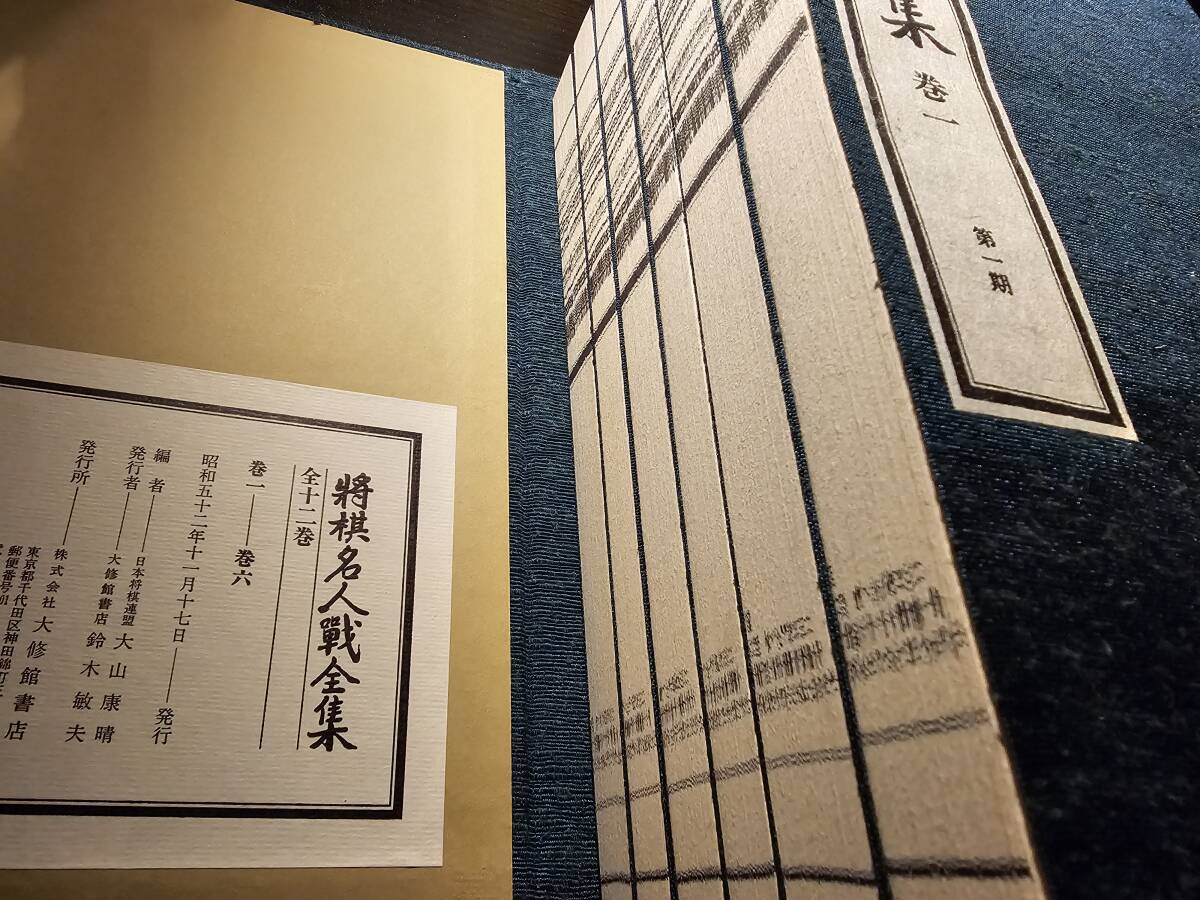 集 巻一 第一期
將棋名人戰全集
全十二巻
巻一――巻六
昭和五十二年十一月十七日――発行
編者――日本将棋連盟 大山康晴
発行者――大修館書店 鈴木敏夫
発行所――株式会社 大修館書店
東京都千代田区神田錦町三
郵便番号101